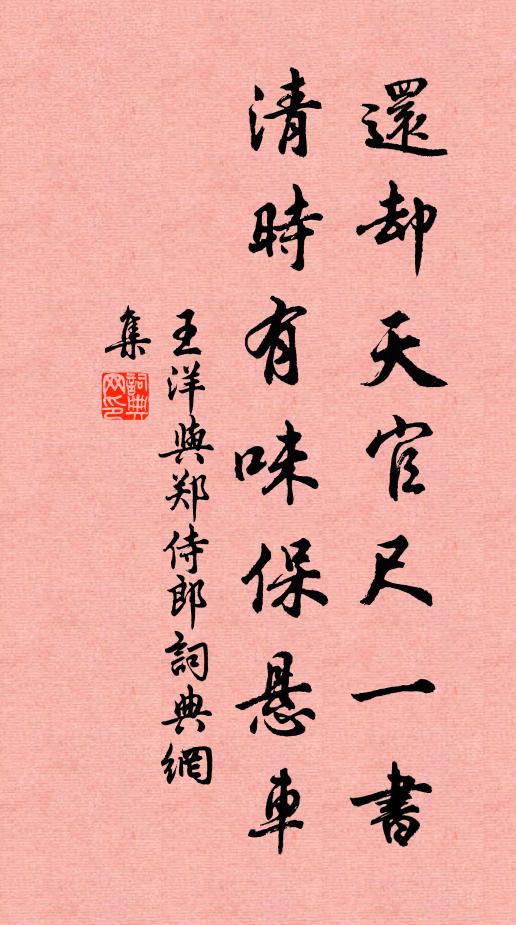 還却天官尺一書
清時有味保悬車
王洋與郑侍郎詞典網
集
詞典
网印